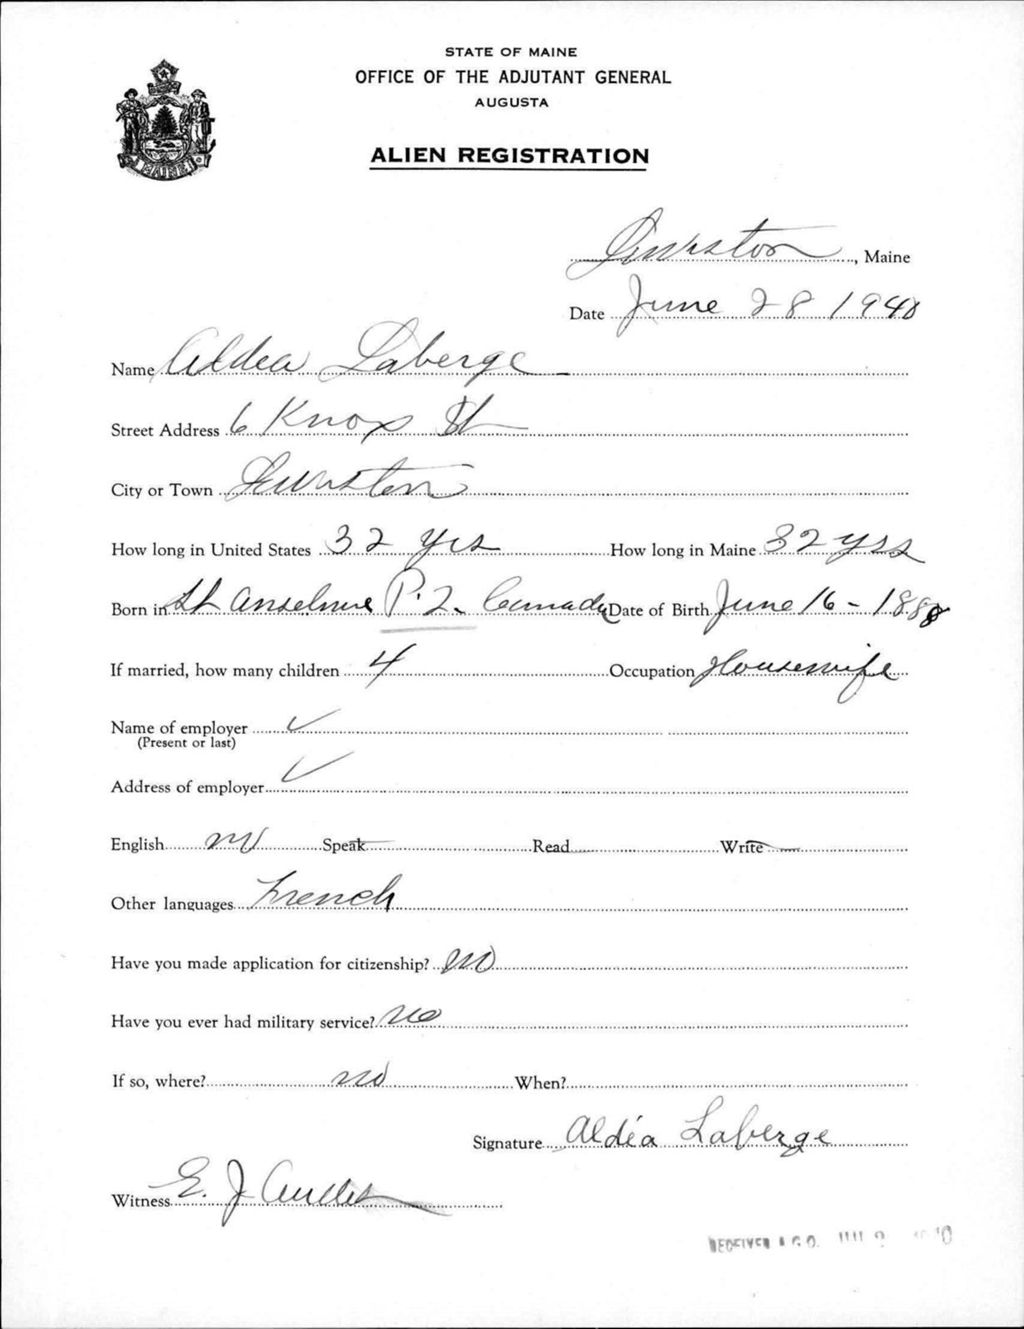 STATE OF MAINE
OFFICE OF THE ADJUTANT GENERAL
AUGUSTA
ALIEN REGISTRATION
MAINE
Lewiston, Maine
Date June 28 1940
Name Aldea Laberge
Street Address 6 Knox St
City or Town Lewiston
How long in United States 32 yrs How long in Maine 32 yrs
Born in St Anselme P.Q. Canada Date of Birth June 16 - 1888
If married, how many children 4 Occupation Housewife
Name of employer ✓
(Present or last)
Address of employer ✓
English no Speak Read Write
Other languages French
Have you made application for citizenship? no
Have you ever had military service? no
If so, where? no When?
Signature Aldéa Laberge
Witness E. J. Audet
RECEIVED A.G.O.